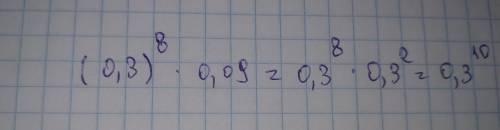 (0,3)⁸ · 0,09 = 0,3⁸ · 0,3² = 0,3¹⁰